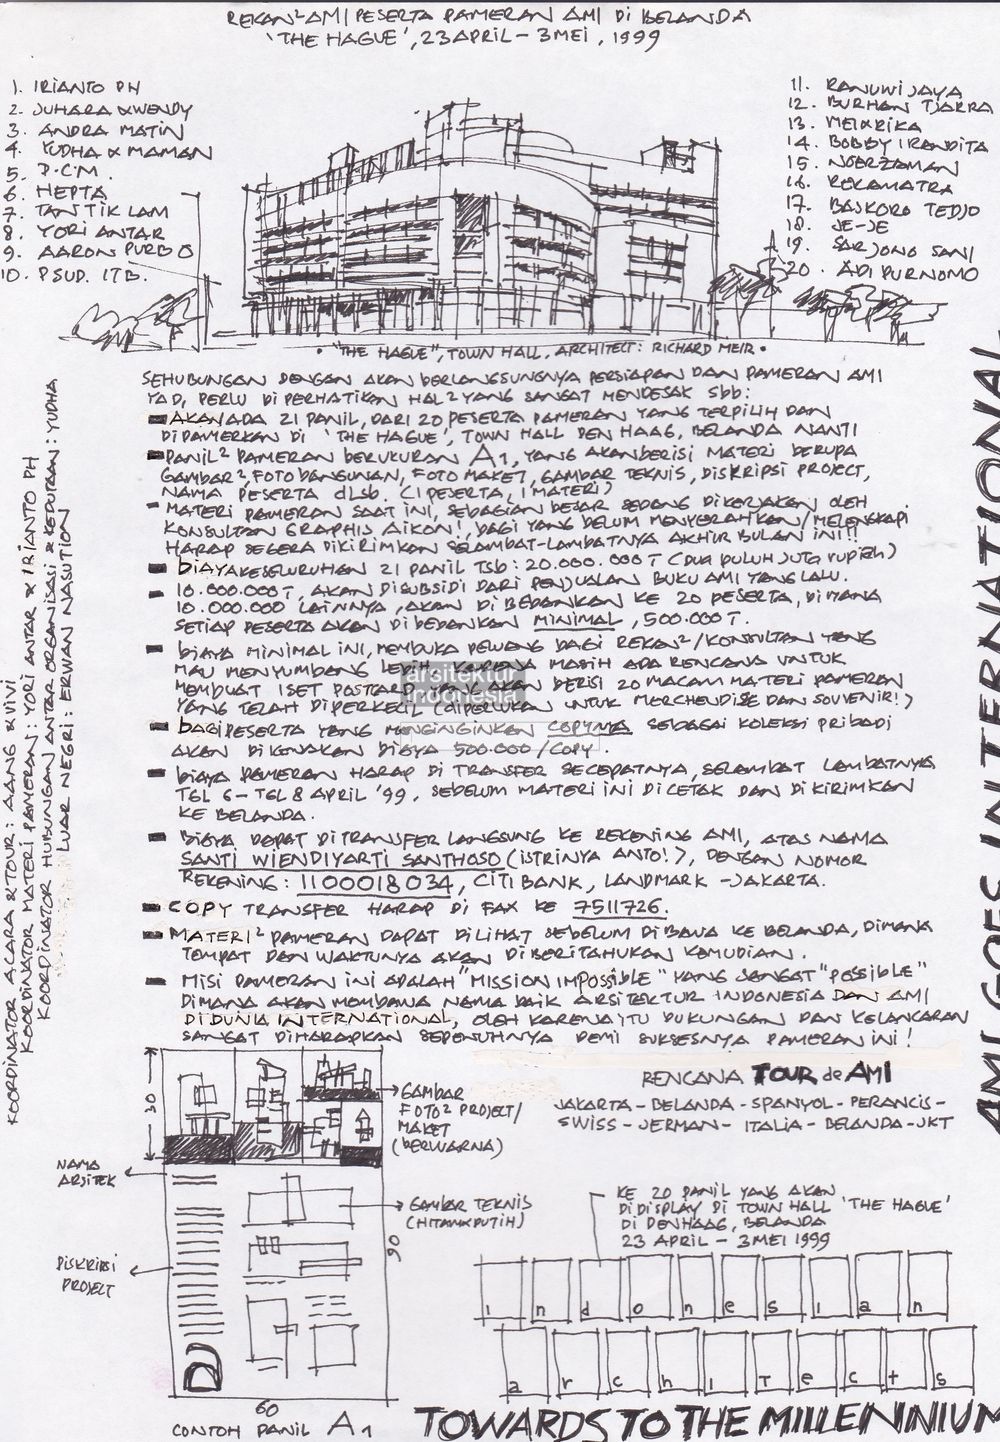 REKAN² AMI PESERTA PAMERAN AMI DI BELANDA
'THE HAGUE', 23 APRIL – 3 MEI, 1999
1. IRIANTO PH
2. JUHARA & WENDY
3. ANDRA MATIN
4. YUDHA & MAMAN
5. D.C.M.
6. HEPTA
7. TAN TIK LAM
8. YORI ANTAR
9. AARON PURBO
10. PSUD. ITB.
11. RANUWIJAYA
12. BURHAN TJARRA
13. MEI & RIKA
14. BOBBY IRANDITA
15. NOERZAMAN
16. REKAMATRA
17. BASKORO TEDJO
18. JE-JE
19. SARJONO SANI
20. ADI PURNOMO
• "THE HAGUE", TOWN HALL, ARCHITECT: RICHARD MEIR •
SEHUBUNGAN DENGAN AKAN BERLANGSUNGNYA PERSIAPAN DAN PAMERAN AMI
YAD, PERLU DIPERHATIKAN HAL² YANG SANGAT MENDESAK Sbb:
– AKAN ADA 21 PANIL, DARI 20 PESERTA PAMERAN YANG TERPILIH DAN
DIPAMERKAN DI 'THE HAGUE', TOWN HALL DEN HAAG, BELANDA NANTI
– PANIL² PAMERAN BERUKURAN A1, YANG AKAN BERISI MATERI BERUPA
GAMBAR², FOTO BANGUNAN, FOTO MAKET, GAMBAR TEKNIS, DISKRIPSI PROJECT,
NAMA PESERTA dLsb. (1 PESERTA, 1 MATERI)
– MATERI PAMERAN SAAT INI, SEBAGIAN BESAR SEDANG DIKERJAKAN OLEH
KONSULTAN GRAPHIS AIKON!, BAGI YANG BELUM MENYERAHKAN/MELENGKAPI
HARAP SEGERA DIKIRIMKAN SELAMBAT-LAMBATNYA AKHIR BULAN INI!!
– BIAYA KESELURUHAN 21 PANIL TSb: 20.000.000 T (DUA PULUH JUTA RUPIAH)
– 10.000.000 T, AKAN DISUBSIDI DARI PENJUALAN BUKU AMI YANG LALU.
10.000.000 LAINNYA, AKAN DI BEBANKAN KE 20 PESERTA, DIMANA
SETIAP PESERTA AKAN DI BEBANKAN MINIMAL, 500.000 T.
– BIAYA MINIMAL INI, MEMBUKA PELUANG BAGI REKAN²/KONSULTAN YANG
MAU MENYUMBANG LEBIH KARENA MASIH ADA RENCANA UNTUK
MEMBUAT 1 SET POSTCARD YANG AKAN BERISI 20 MACAM MATERI PAMERAN
YANG TELAH DIPERKECIL (DIPERLUKAN UNTUK MERCHENDISE DAN SOUVENIR!)
arsitektur
indonesia
– BAGI PESERTA YANG MENGINGINKAN COPYNYA SEBAGAI KOLEKSI PRIBADI
AKAN DIKENAKAN BIAYA 500.000/COPY.
– BIAYA PAMERAN HARAP DI TRANSFER SECEPATNYA, SELAMBAT LAMBATNYA
TGL 6 – TGL 8 APRIL '99, SEBELUM MATERI INI DICETAK DAN DIKIRIMKAN
KE BELANDA.
– BIAYA DAPAT DITRANSFER LANGSUNG KE REKENING AMI, ATAS NAMA
SANTI WIENDIYARTI SANTHOSO (ISTRINYA ANTO!), DENGAN NOMOR
REKENING: 1100018034, CITIBANK, LANDMARK – JAKARTA.
– COPY TRANSFER HARAP DI FAX KE 7511726.
– MATERI² PAMERAN DAPAT DILIHAT SEBELUM DIBAWA KE BELANDA, DIMANA
TEMPAT DAN WAKTUNYA AKAN DIBERITAHUKAN KEMUDIAN.
– MISI PAMERAN INI ADALAH "MISSION IMPOSSIBLE" YANG SANGAT "POSSIBLE"
DIMANA AKAN MEMBAWA NAMA BAIK ARSITEKTUR INDONESIA DAN AMI
DI DUNIA INTERNATIONAL, OLEH KARENA ITU DUKUNGAN DAN KELANCARAN
SANGAT DIHARAPKAN SEPENUHNYA DEMI SUKSESNYA PAMERAN INI!
KOORDINATOR ACARA & TOUR: AANG & VIVI
KOORDINATOR MATERI PAMERAN: YORI ANTAR & IRIANTO PH
KOORDINATOR HUBUNGAN ANTAR ORGANISASI & KEDUTAAN: YUDHA
LUAR NEGRI: ERWAN NASUTION
AMI GOES INTERNATIONAL
RENCANA TOUR de AMI
JAKARTA – BELANDA – SPANYOL – PERANCIS –
SWISS – JERMAN – ITALIA – BELANDA – JKT
30
GAMBAR
FOTO² PROJECT/
MAKET
(BERWARNA)
NAMA
ARSITEK
GAMBAR TEKNIS
(HITAM & PUTIH)
DISKRIPSI
PROJECT
90
60
CONTOH PANIL A1
KE 20 PANIL YANG AKAN
DIDISPLAY DI TOWN HALL 'THE HAGUE'
DI DENHAAG, BELANDA
23 APRIL – 3 MEI 1999
indonesian
architects
TOWARDS TO THE MILLENNIUM